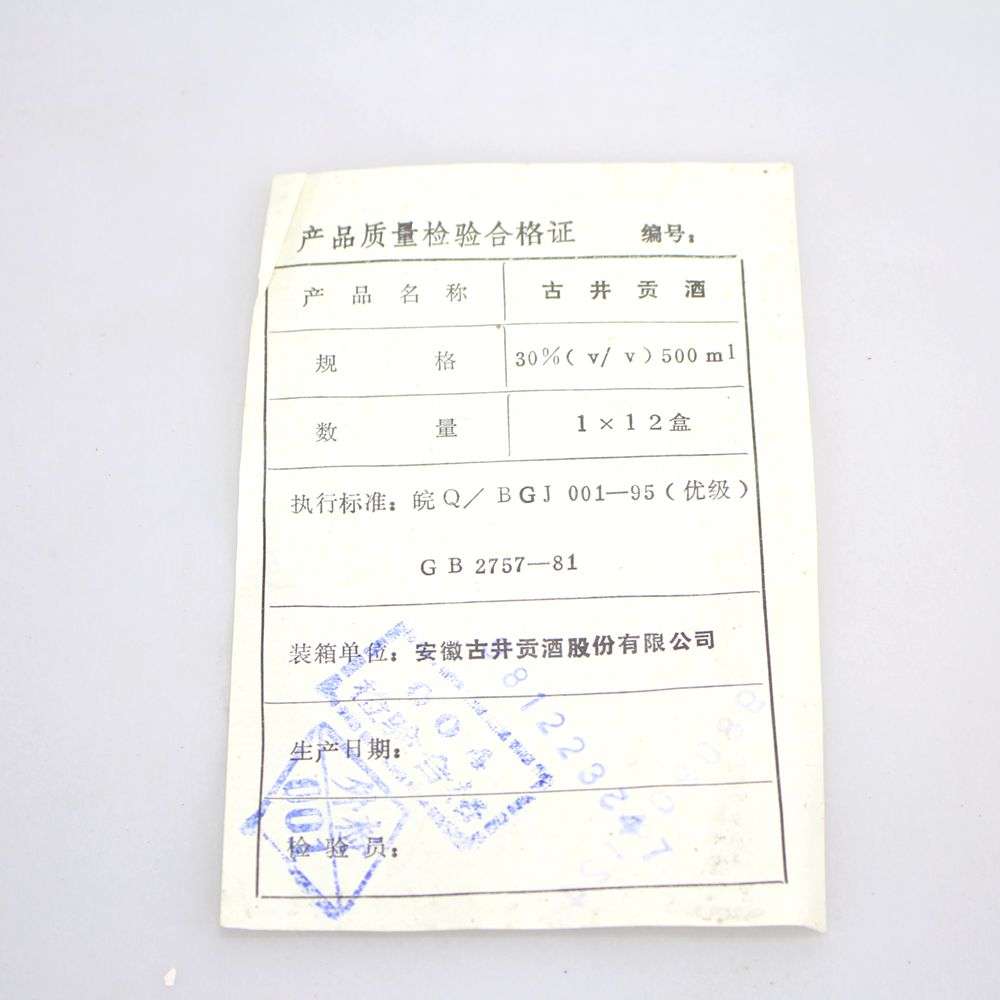 产品质量检验合格证 编号：
产品名称 古井贡酒
规格 30%(v/v)500ml
数量 1×12盒
执行标准：皖Q/BGJ 001—95（优级）
GB 2757—81
装箱单位：安徽古井贡酒股份有限公司
生产日期：
检验员：
004
检验合格
外检